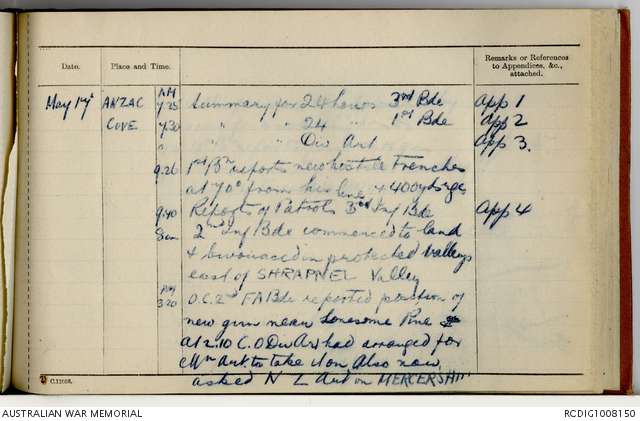 Date.
Place and Time.
Remarks or References
to Appendices, &c.,
attached.
May 17th ANZAC AM
7.25 Summary for 24 hours 3rd Bde App 1
COVE 7.30 " " 24 " 1st Bde App 2
" " " Div Art App 3.
9.26 1st Bn reports new hostile trenches
at 70° from his line + 400 yds rge
9.40 Reports of Patrols 3rd Inf Bde App 4
2nd Inf Bde commenced to land
& bivouaced in protected valleys
east of SHRAPNEL Valley
PM
3.20 O.C. 2nd FA Bde reported position of
new gun near Lonesome Pine
At 2.10 C.O Div Art had arranged for
Mtn Art. to take it on Also now
asked N Z Art on
C.11098.
AUSTRALIAN WAR MEMORIAL
RCDIG1008150